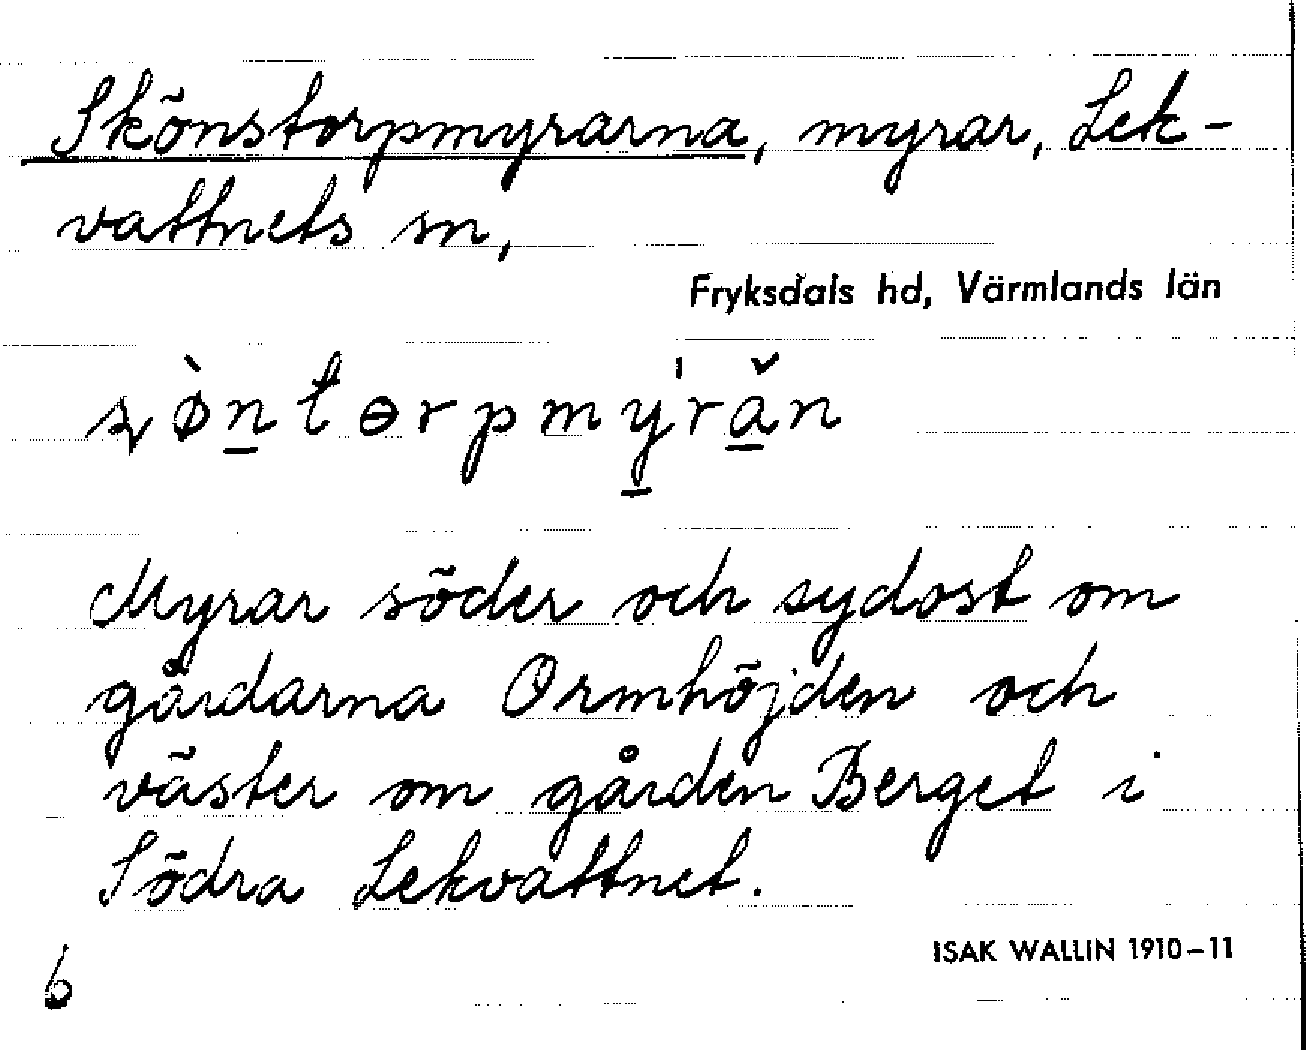 Skönstorpmyrarna, myrar, Lek-
vattnets sn,
Fryksdals hd, Värmlands län
Myrar söder och sydost om
gårdarna Ormhöjden och
väster om gården Berget i
Södra Lekvattnet.
ISAK WALLIN 1910-11
6